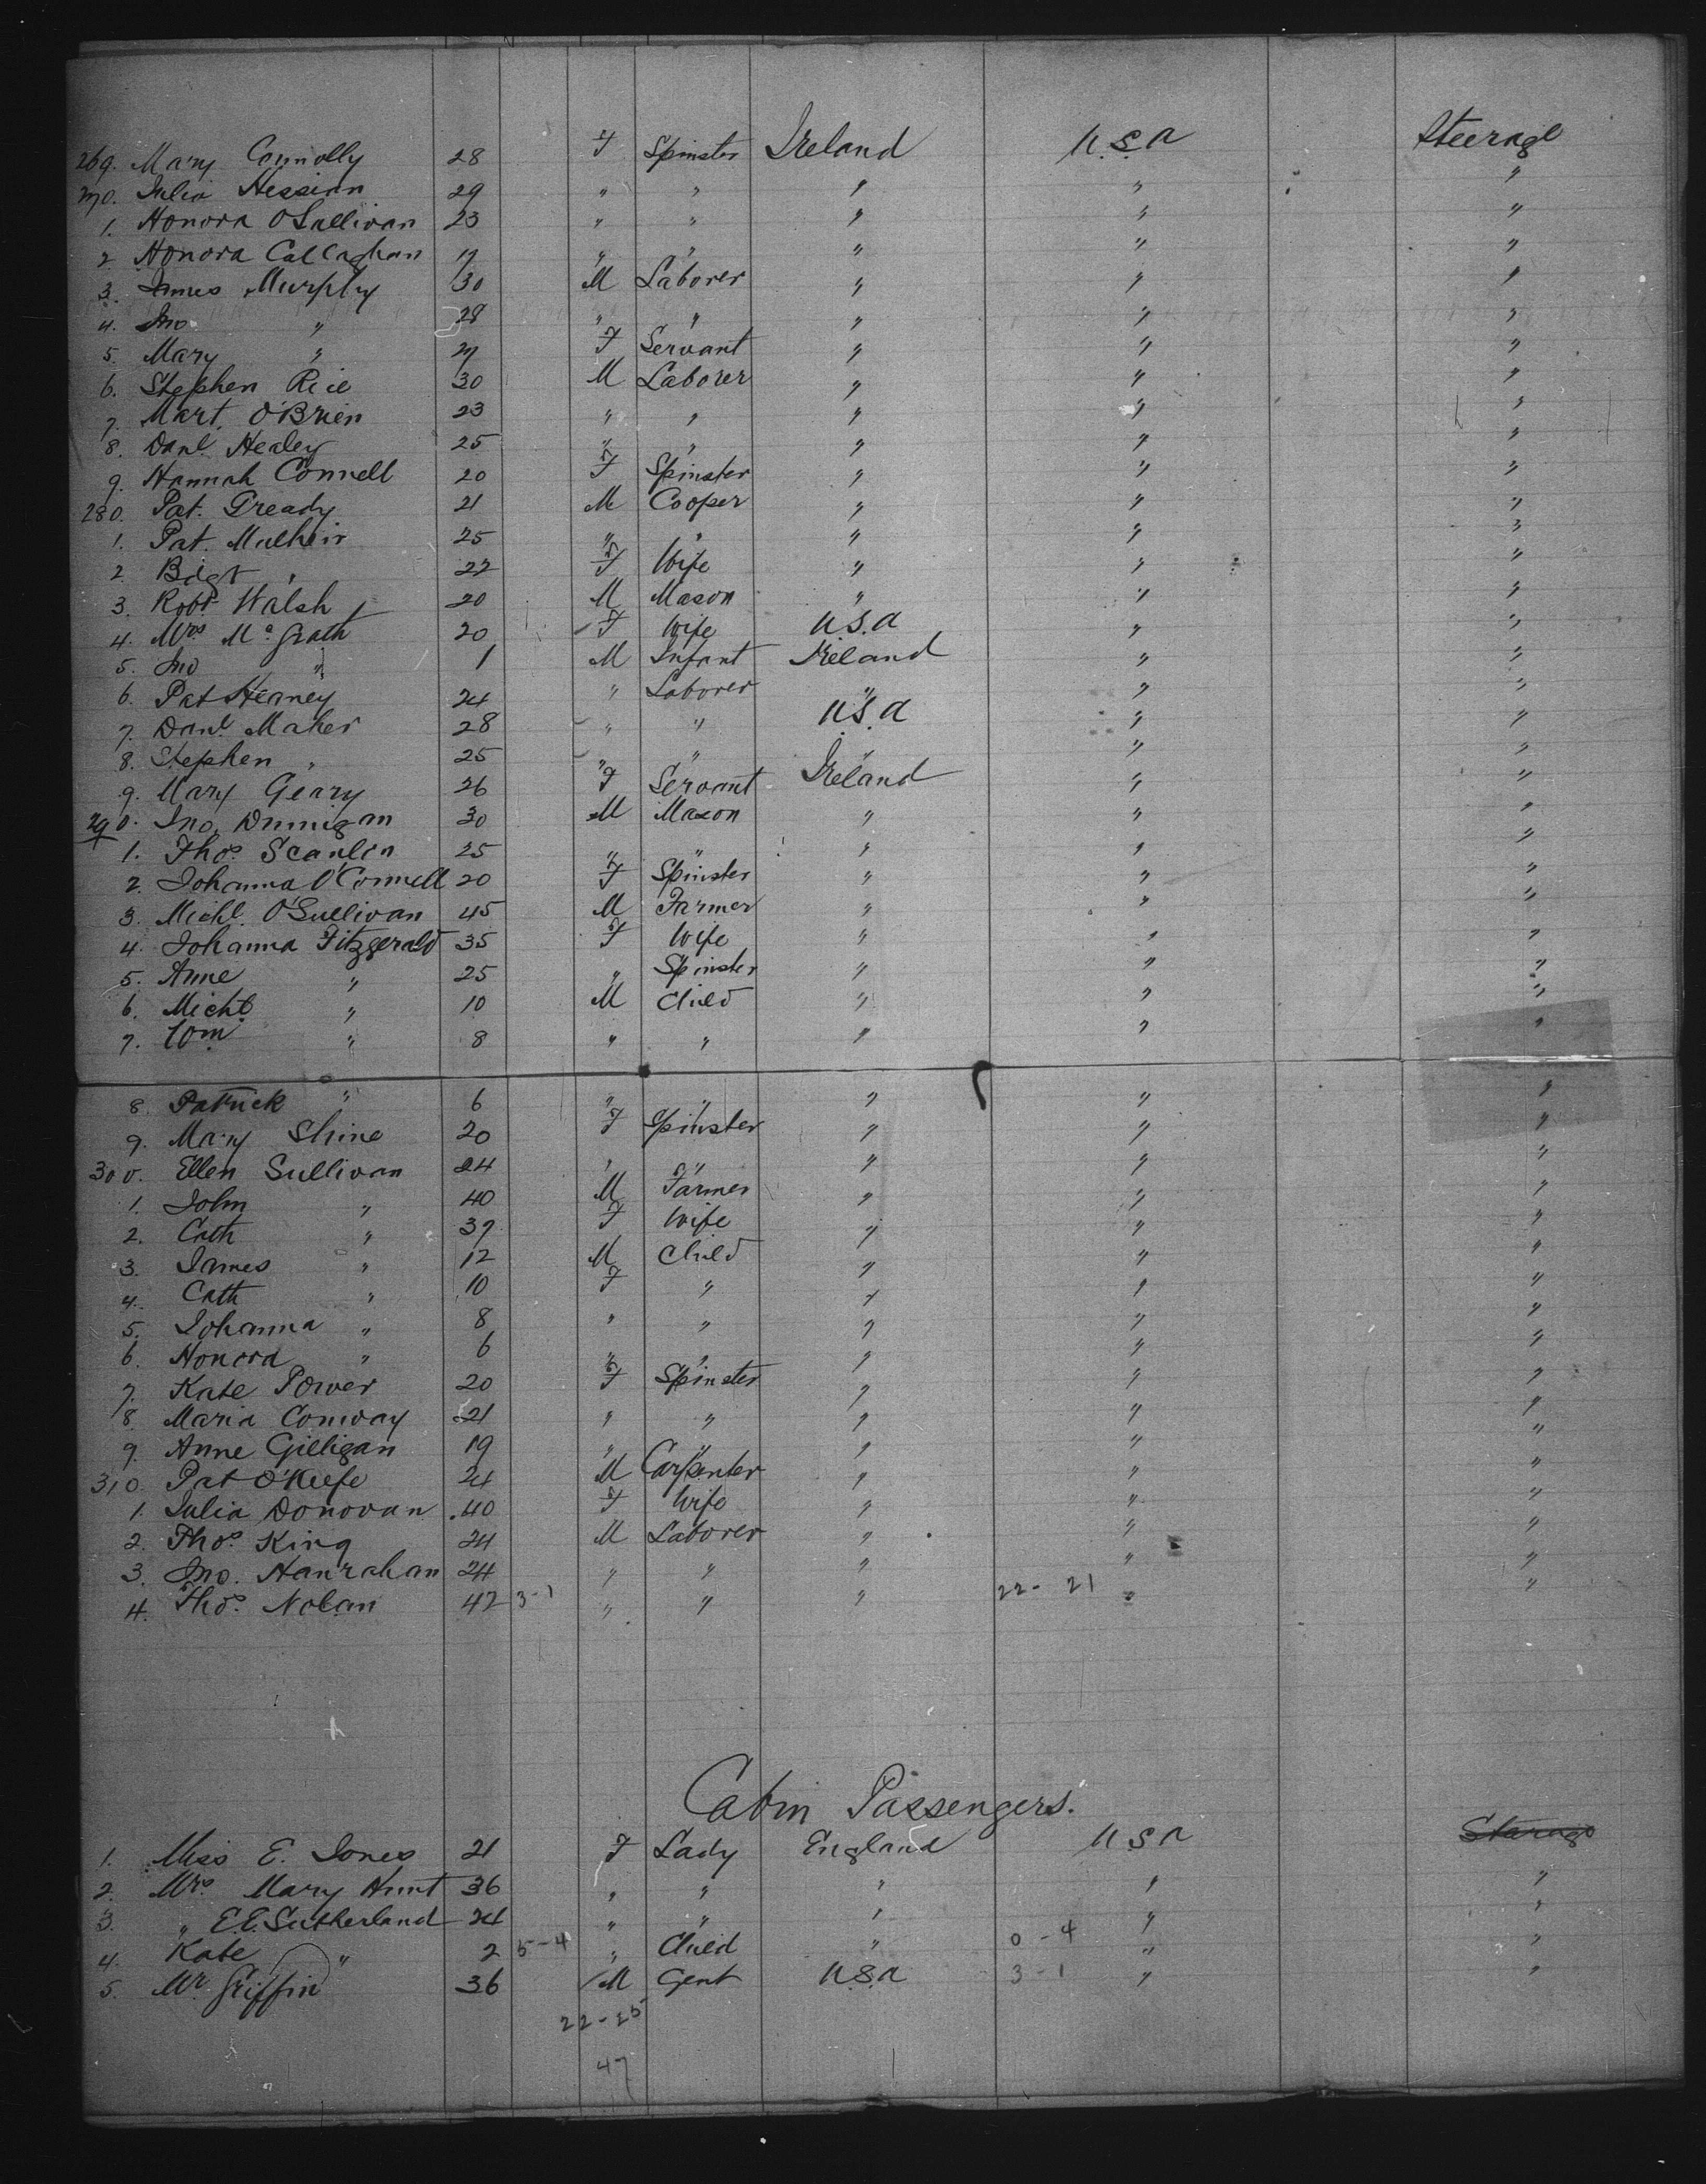 269. Mary Connolly 28 F Spinster Ireland U.S.A Steerage
270. Julia Hession 29 " " " " "
1. Honora O'Sullivan 23 " " " " "
2. Honora Callaghan 17 " " " " "
3. James Murphy 30 M Laborer " " "
4. Jno " 28 " " " " "
5. Mary " 27 F Servant " " "
6. Stephen Rice 30 M Laborer " " "
7. Mart. O'Brien 23 " " " " "
8. Danl Healey 25 " " " " "
9. Hannah Connell 20 F Spinster " " "
280. Pat. Gready 21 M Cooper " " "
1. Pat. Mulheir 25 " " " " "
2. Bidgt " 22 F Wife " " "
3. Robt Walsh 20 M Mason " " "
4. Mrs McGrath 20 F Wife U.S.A " "
5. Jno " 1 M Infant Ireland " "
6. Pat Heaney 24 " Laborer " " "
7. Danl Maher 28 " " U.S.A " "
8. Stephen " 25 " " " " "
9. Mary Geary 26 F Servant Ireland " "
290. Jno. Dunnigan 30 M Mason " " "
1. Thos. Scanlon 25 " " " " "
2. Johanna O'Connell 20 F Spinster " " "
3. Michl. O'Sullivan 45 M Farmer " " "
4. Johanna Fitzgerald 35 F Wife " " "
5. Anne " 25 " Spinster " " "
6. Michl " 10 M Child " " "
7. Wm " 8 " " " " "
8. Patrick " 6 " " " " "
9. Mary Shine 20 F Spinster " " "
300. Ellen Sullivan 24 " " " " "
1. John " 40 M Farmer " " "
2. Cath " 37 F Wife " " "
3. James " 12 M Child " " "
4. Cath " 10 F " " " "
5. Johanna " 8 " " " " "
6. Honora " 6 " " " " "
7. Kate Power 20 F Spinster " " "
8. Maria Conway 21 " " " " "
9. Anne Gilligan 19 " " " " "
310. Pat O'Keefe 24 M Carpenter " " "
1. Julia Donovan 40 F Wife " " "
2. Thos. King 24 M Laborer " " "
3. Jno. Hanrahan 24 " " " " "
4. Thos. Nolan 42 3-1 " " " 22-21 " "
Cabin Passengers.
1. Miss E. Jones 21 F Lady England U.S.A Steerage
2. Mrs. Mary Hunt 36 " " " " "
3. " E.E. Sutherland 24 " " " " "
4. Kate " 2 5-4 " Child " 0-4 " "
5. Mr. Griffin 36 M Gent U.S.A 3-1 " "
22-25
47